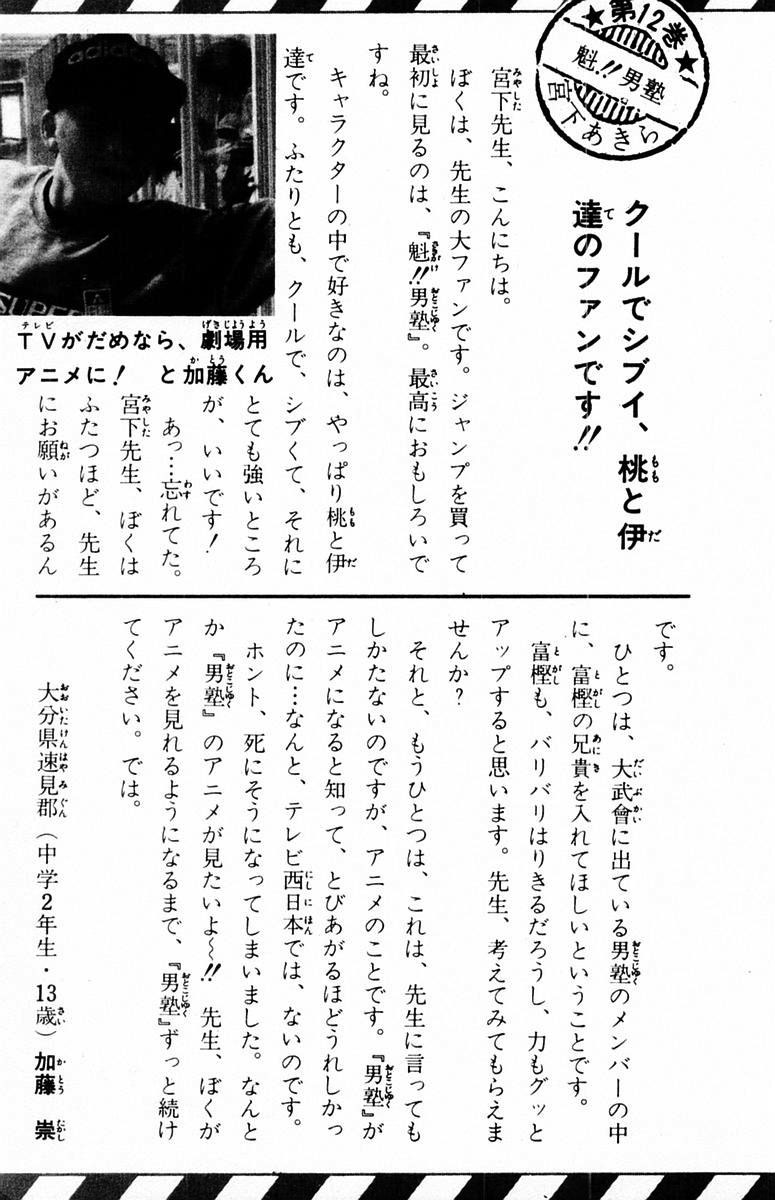 ★第12巻★
魁!!男塾
宮下あきら
クールでシブイ、桃と伊
達のファンです!!
宮下先生、こんにちは。
ぼくは、先生の大ファンです。ジャンプを買って
最初に見るのは、『魁!!男塾』。最高におもしろいで
すね。
キャラクターの中で好きなのは、やっぱり桃と伊
達です。ふたりとも、クールで、シブくて、それに
とても強いところ
が、いいです!
あっ…忘れてた。
宮下先生、ぼくは
ふたつほど、先生
にお願いがあるん
adidas
SUPER
TVがだめなら、劇場用
アニメに! と加藤くん
です。
ひとつは、大武會に出ている男塾のメンバーの中
に、富樫の兄貴を入れてほしいということです。
富樫も、バリバリはりきるだろうし、力もグッと
アップすると思います。先生、考えてみてもらえま
せんか?
それと、もうひとつは、これは、先生に言っても
しかたないのですが、アニメのことです。『男塾』が
アニメになると知って、とびあがるほどうれしかっ
たのに…なんと、テレビ西日本では、ないのです。
ホント、死にそうになってしまいました。なんと
か『男塾』のアニメが見たいよ〜!! 先生、ぼくが
アニメを見れるようになるまで、『男塾』ずっと続け
てください。では。
大分県速見郡(中学2年生・13歳)加藤 崇